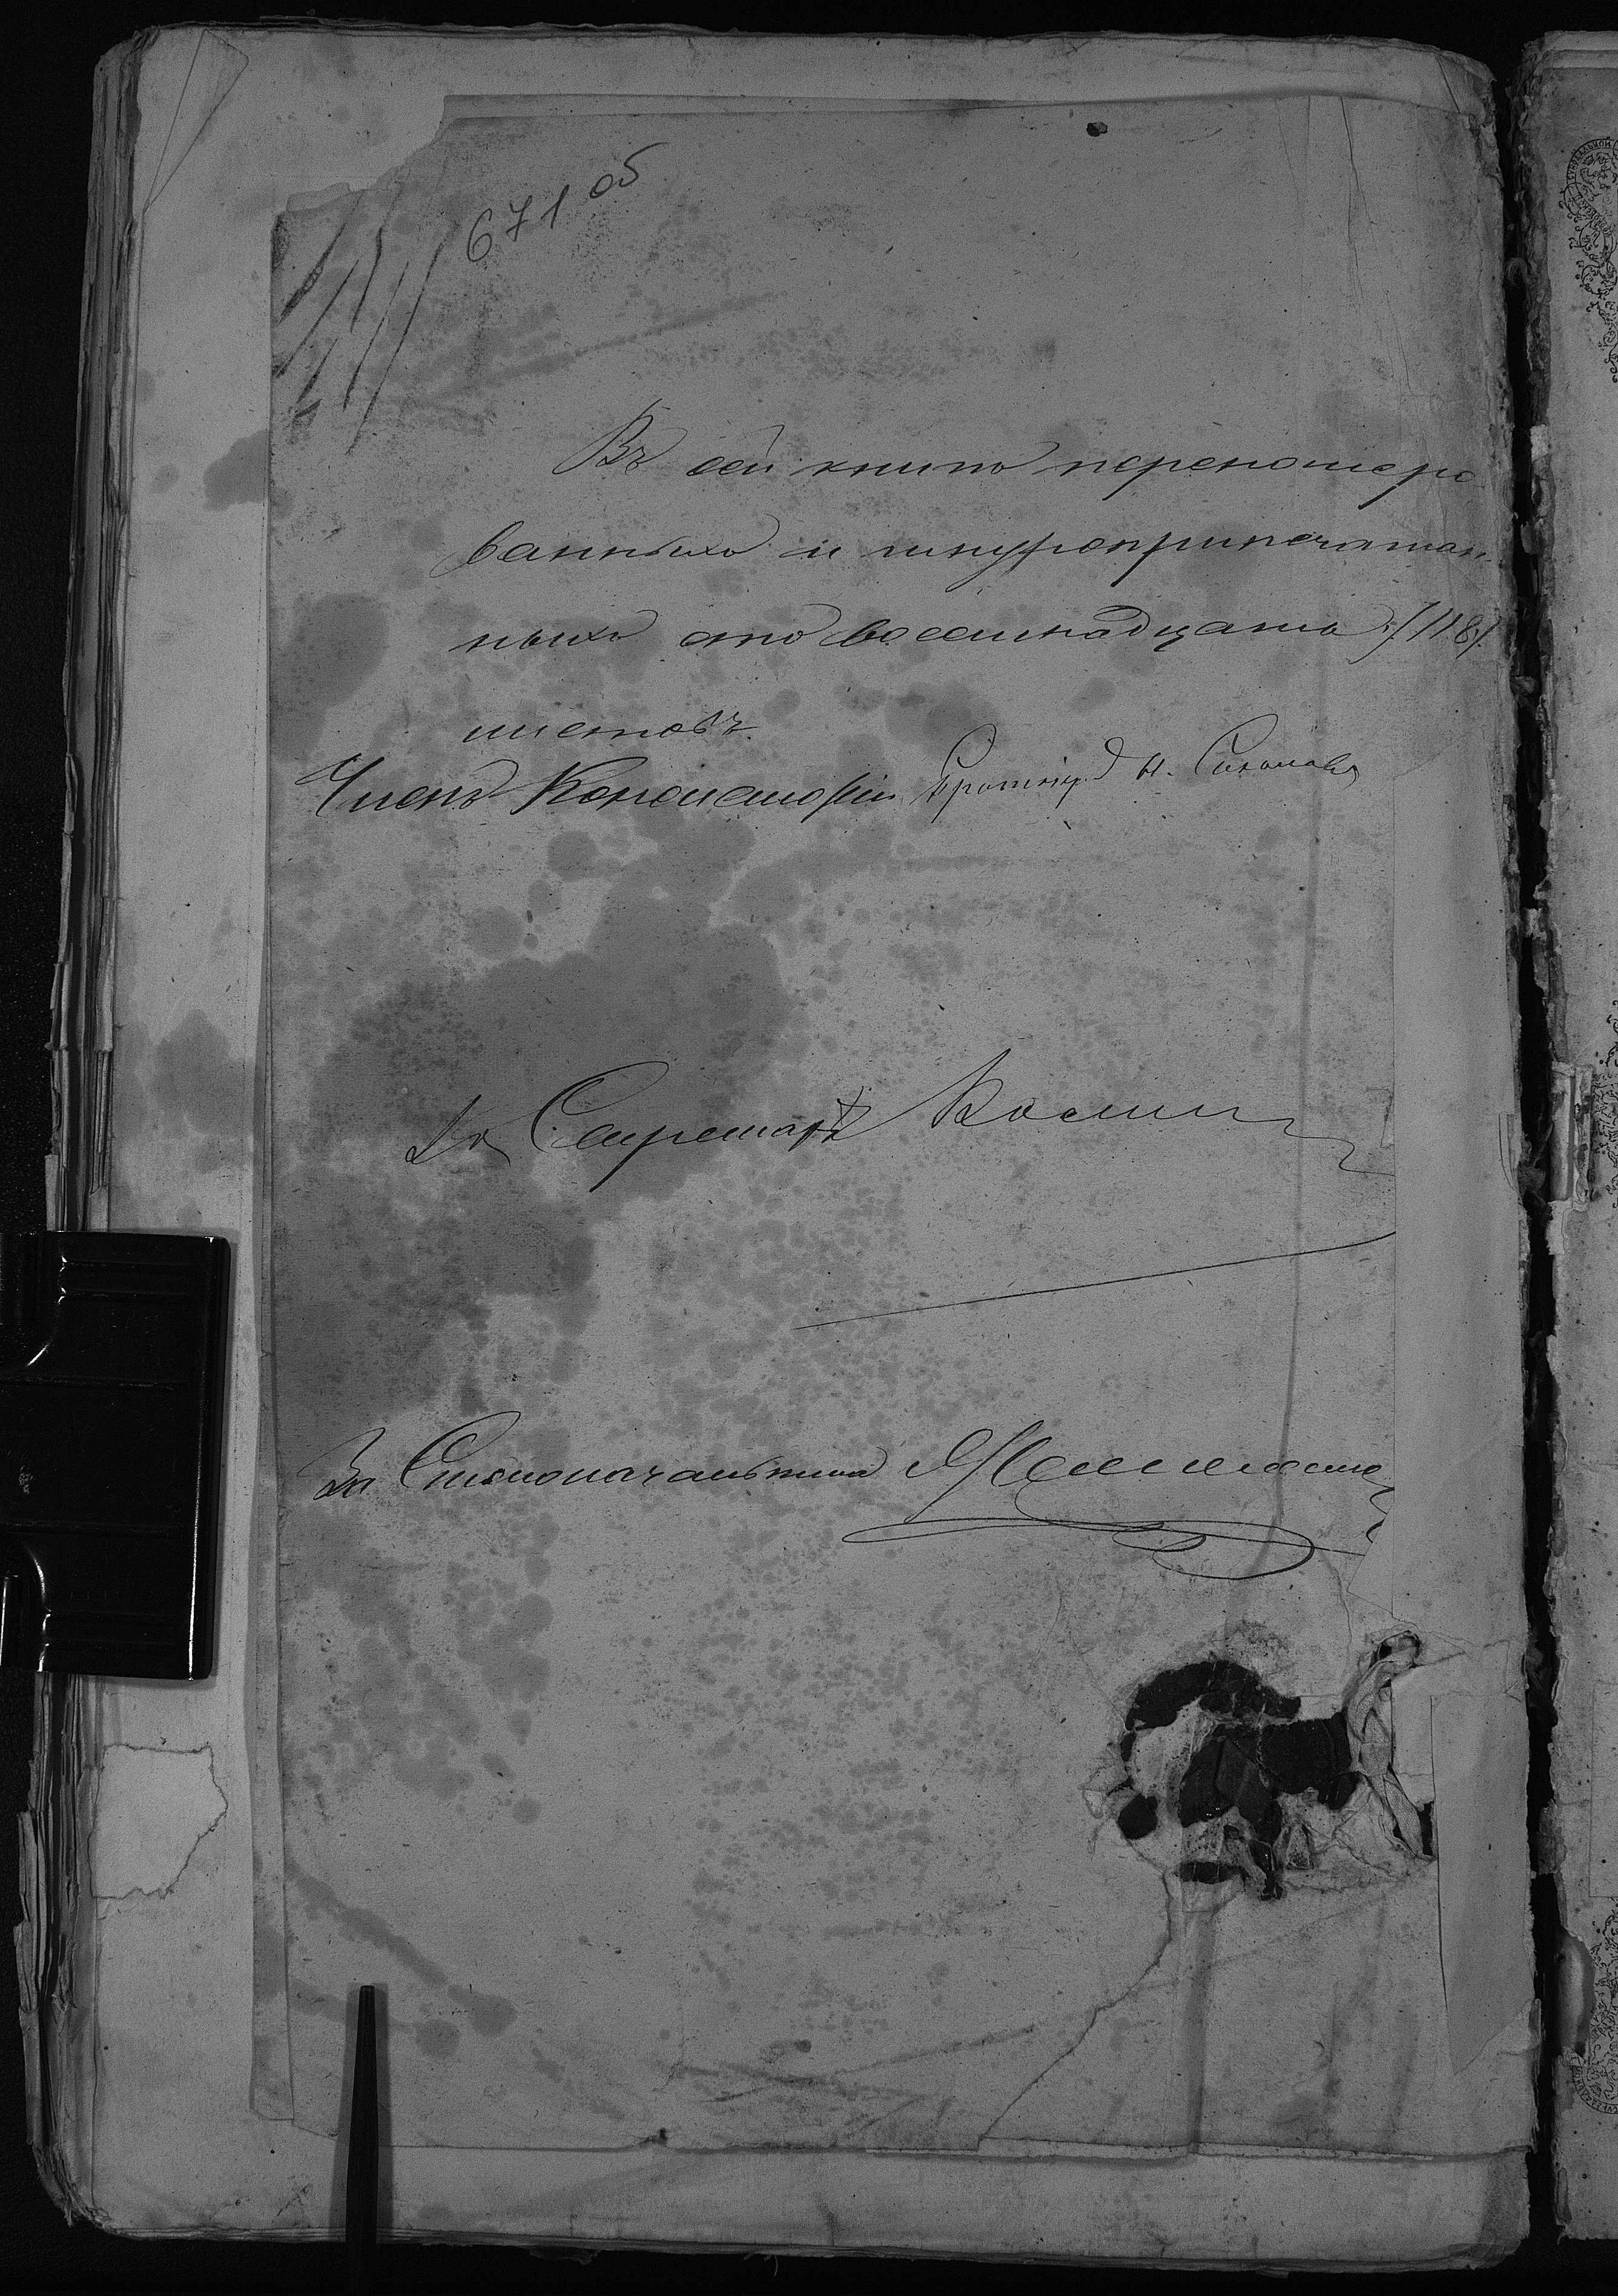 671 об
Въ сей книгѣ переномеро
ванныхъ и шнуроприпечатан
ныхъ сто восемнадцать /118/.
листовъ.
Членъ Консисторіи Протоіер. Н. Соколовъ
За Секретаря
За Столоначальника